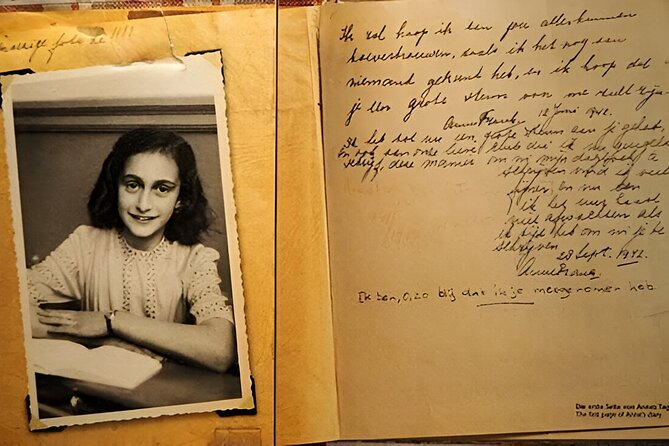 foto
Ik zal hoop ik aan jou alles kunnen
toevertrouwen, zoals ik het nog aan
niemand gekund heb, en ik hoop dat
je een grote steun voor me zult zijn.
Anne Frank. 12 Juni 1942.
Ik heb tot nu een grote steun aan je gehad
en ook aan onze lieve club die ik nu geregeld
schrijf, deze manier om in mijn dagboek te
schrijven vind ik veel
fijner en nu kan
ik het uur haast
niet afwachten als
ik tijd heb om in je te
schrijven.
28 Sept. 1942.
Anne Frank.
Ik ben, o, zo blij dat ik je meegenomen heb.
Die erste Seite von Annes Tag
The first page of Anne's diary